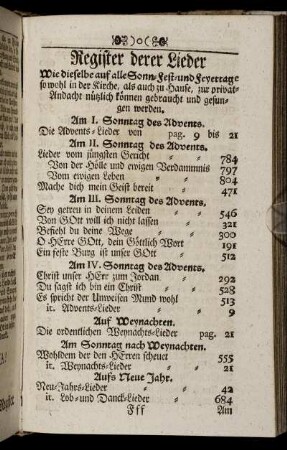 )o(
Register derer Lieder
Wie dieselbe auf alle Sonn-Fest-und Feyertage
so wohl in der Kirche, als auch zu Hause, zur privat-
Andacht nützlich können gebraucht und gesun-
gen werden.
Am I. Sonntag des Advents.
Die Advents-Lieder von pag. 9 bis 21
Am II. Sonntag des Advents.
Lieder vom jüngsten Gericht 784
Von der Hölle und ewigen Verdammnis 797
Vom ewigen Leben 804
Mache dich mein Geist bereit 471
Am III. Sonntag des Advents.
Sey getren in deinem Leiden 546
Von GOtt will ich nicht lassen 321
Befiehl du deine Wege 300
O HErre GOtt, dein Göttlich Wort 191
Ein feste Burg ist unser GOtt 512
Am IV. Sonntag des Advents.
Christ unser HErr zum Jordan 292
Du sagst ich bin ein Christ 528
Es spricht der Unweisen Mund wohl 513
it. Advents-Lieder 9
Auf Weynachten.
Die ordentlichen Weynachts-Lieder pag. 21
Am Sonntag nach Weynachten.
Wohldem der den HErren scheuet 555
it. Weynachts-Lieder 21
Aufs Neue Jahr.
Neu-Jahrs-Lieder 42
it. Lob-und Danck-Lieder 684
Fff Am